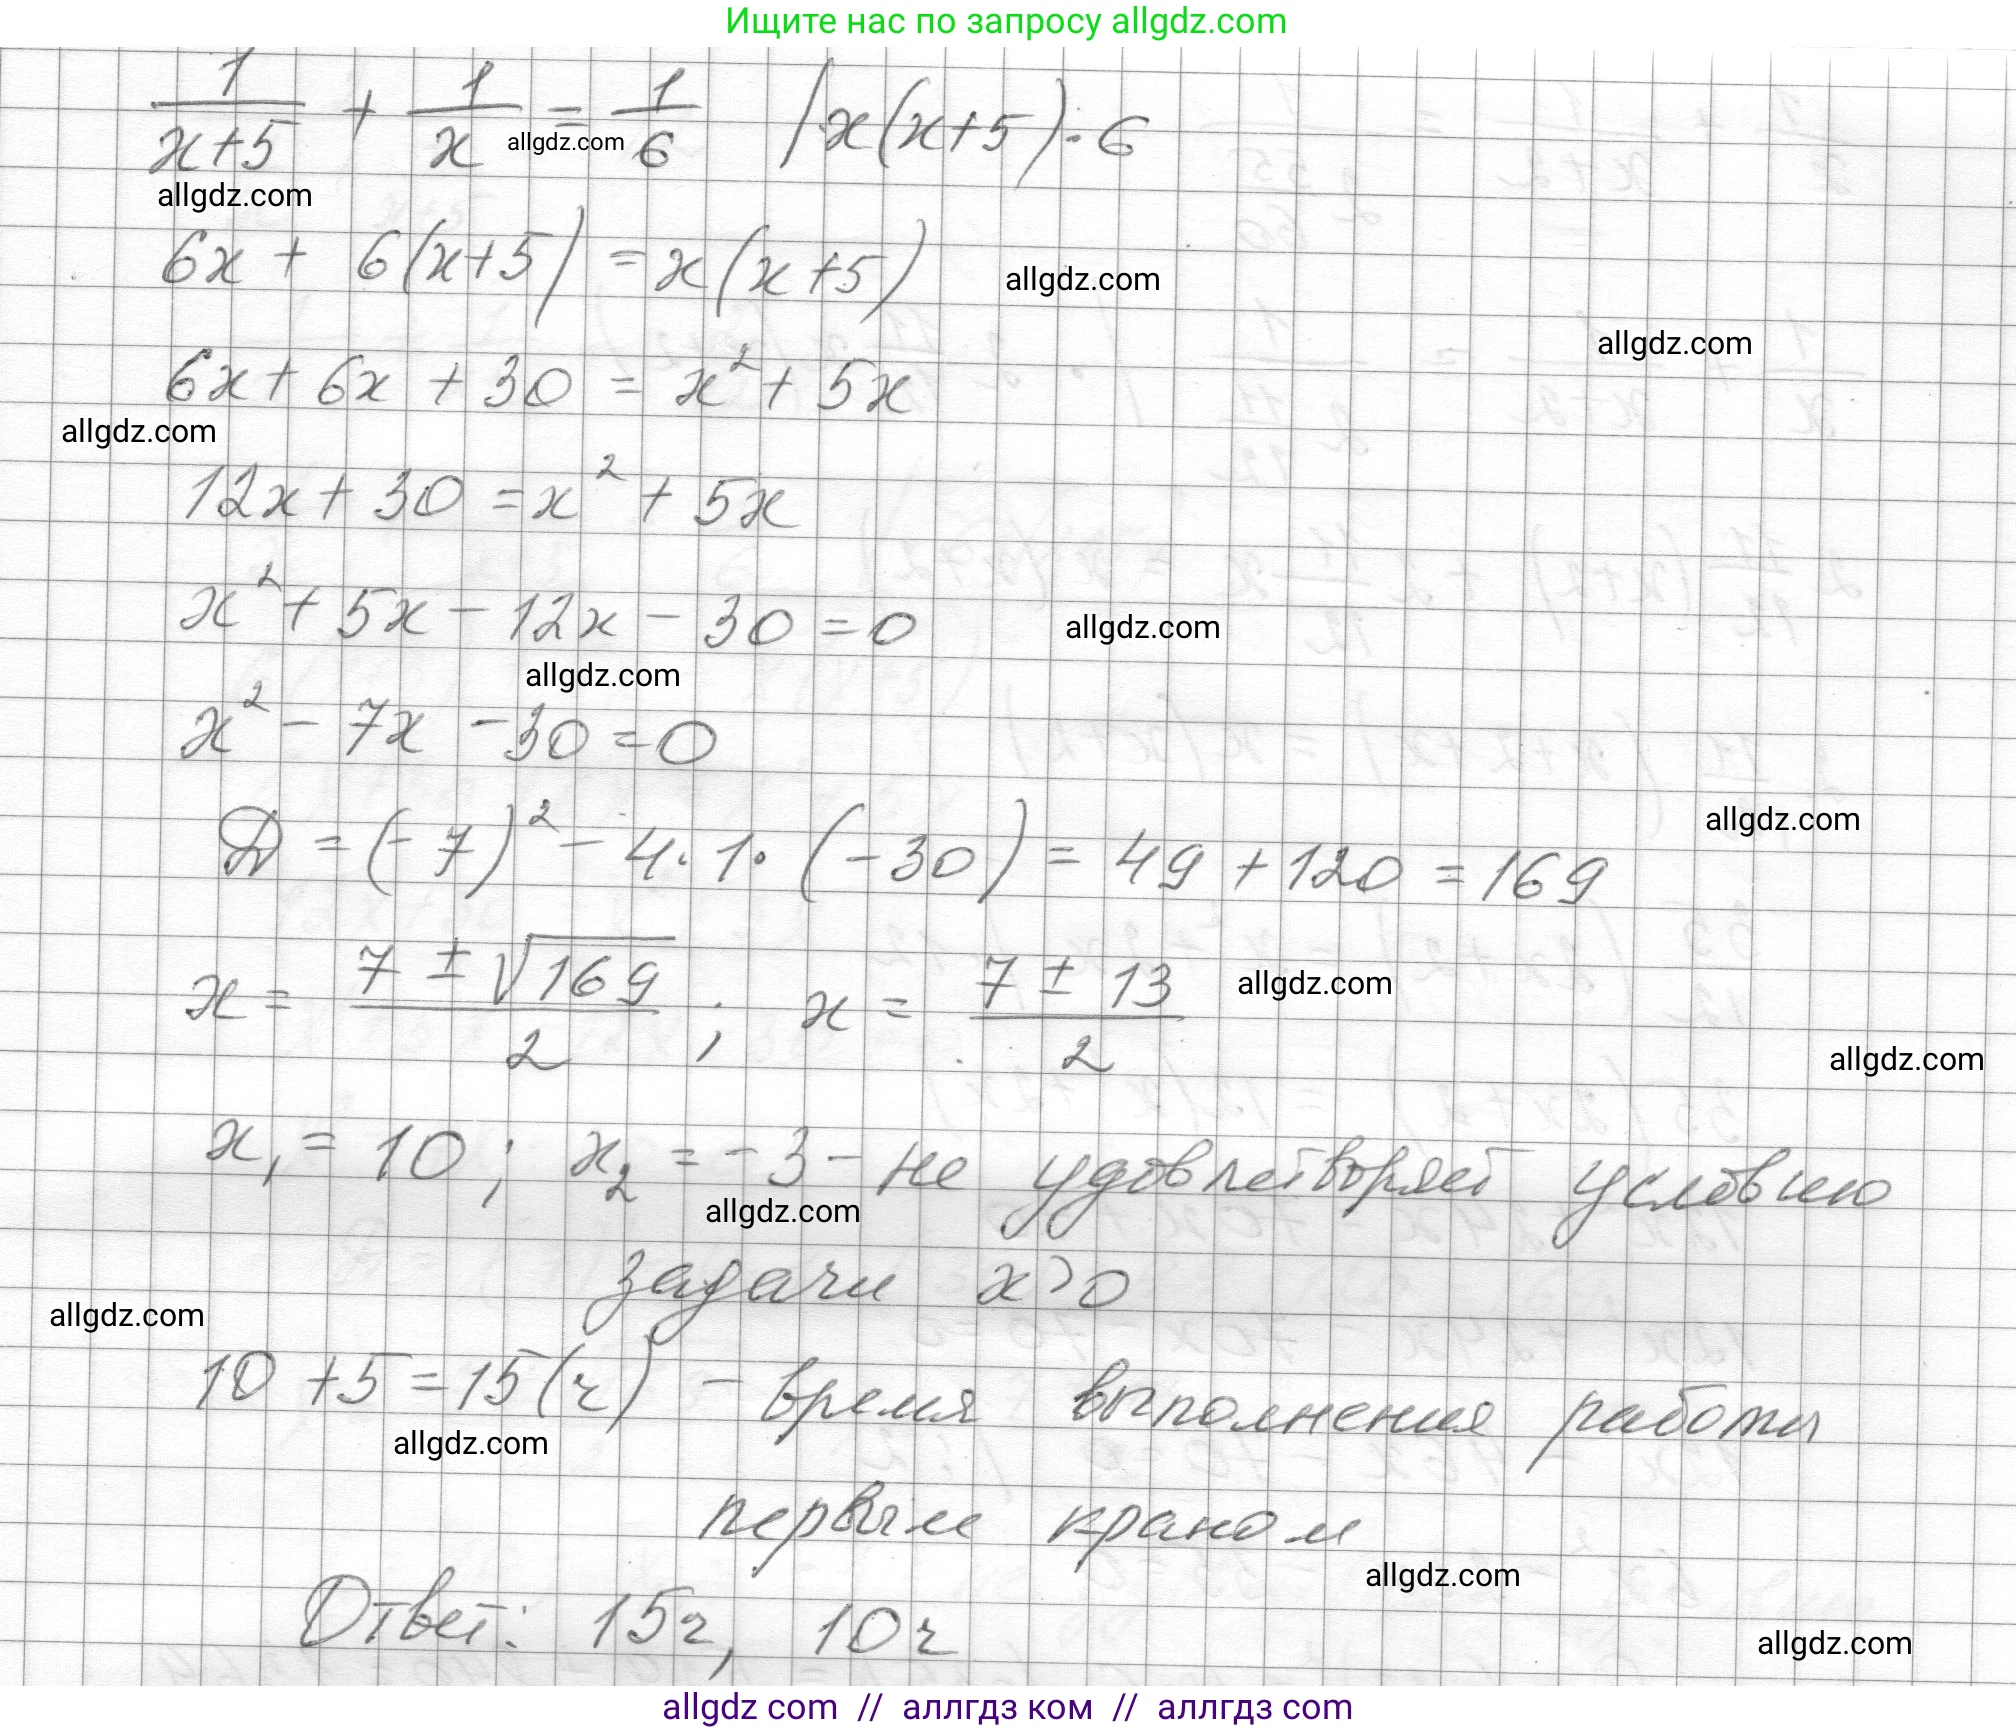 Ищите нас по запросу allgdz.com
1/(x+5) + 1/x = 1/6 | x(x+5)·6
allgdz.com
allgdz.com
6x + 6(x+5) = x(x+5)
allgdz.com
allgdz.com
6x + 6x + 30 = x² + 5x
allgdz.com
12x + 30 = x² + 5x
x² + 5x - 12x - 30 = 0
allgdz.com
allgdz.com
x² - 7x - 30 = 0
allgdz.com
D = (-7)² - 4·1·(-30) = 49 + 120 = 169
x = (7 ± √169)/2 ; x = (7 ± 13)/2
allgdz.com
allgdz.com
x₁ = 10; x₂ = -3 - не удовлетворяет условию
allgdz.com
задачи x>0
allgdz.com
10 + 5 = 15 (ч) - время выполнения работы
allgdz.com
первым краном
allgdz.com
Ответ: 15ч, 10ч
allgdz.com
allgdz com // аллгдз ком // аллгдз com